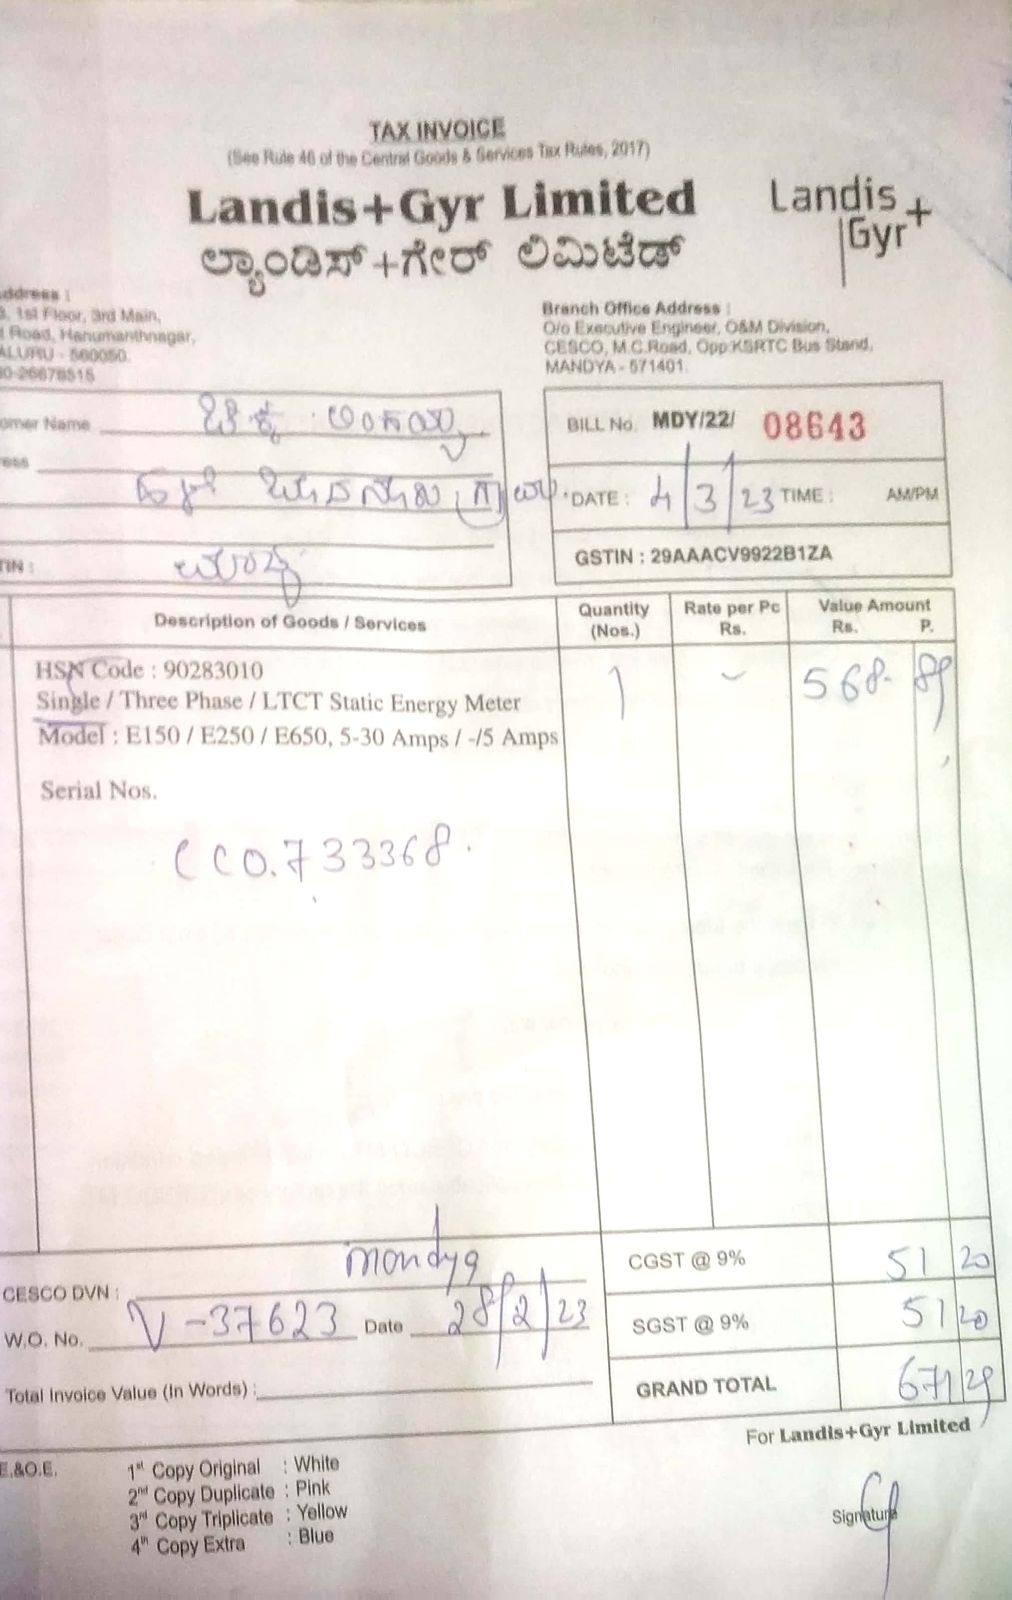 TAX INVOICE
(See Rule 46 of the Central Goods & Services Tax Rules, 2017)
Landis+Gyr Limited
Landis
Gyr+
ಲ್ಯಾಂಡಿಸ್+ಗೇರ್ ಲಿಮಿಟೆಡ್
ddress :
1st Floor, 3rd Main,
Road, Hanumanthnagar,
ALURU - 560050.
0-26678515
Branch Office Address :
O/o Executive Engineer, O&M Division,
CESCO, M.C.Road, Opp:KSRTC Bus Stand,
MANDYA - 571401.
omer Name
ress
TIN :
BILL No. MDY/22/ 08643
DATE : 4/3/23 TIME : AM/PM
GSTIN : 29AAACV9922B1ZA
Description of Goods / Services Quantity (Nos.) Rate per Pc Rs. Value Amount Rs. P.
HSN Code : 90283010
Single / Three Phase / LTCT Static Energy Meter 1 - 568. 89
Model : E150 / E250 / E650, 5-30 Amps / -/5 Amps
Serial Nos.
CCO.733368.
CESCO DVN : mandya
W.O. No. V-37623 Date 28/2/23
Total Invoice Value (In Words) :
CGST @ 9% 51 20
SGST @ 9% 51 20
GRAND TOTAL 671 29
For Landis+Gyr Limited
E.&O.E.
1st Copy Original : White
2nd Copy Duplicate : Pink
3rd Copy Triplicate : Yellow
4th Copy Extra : Blue
Signature